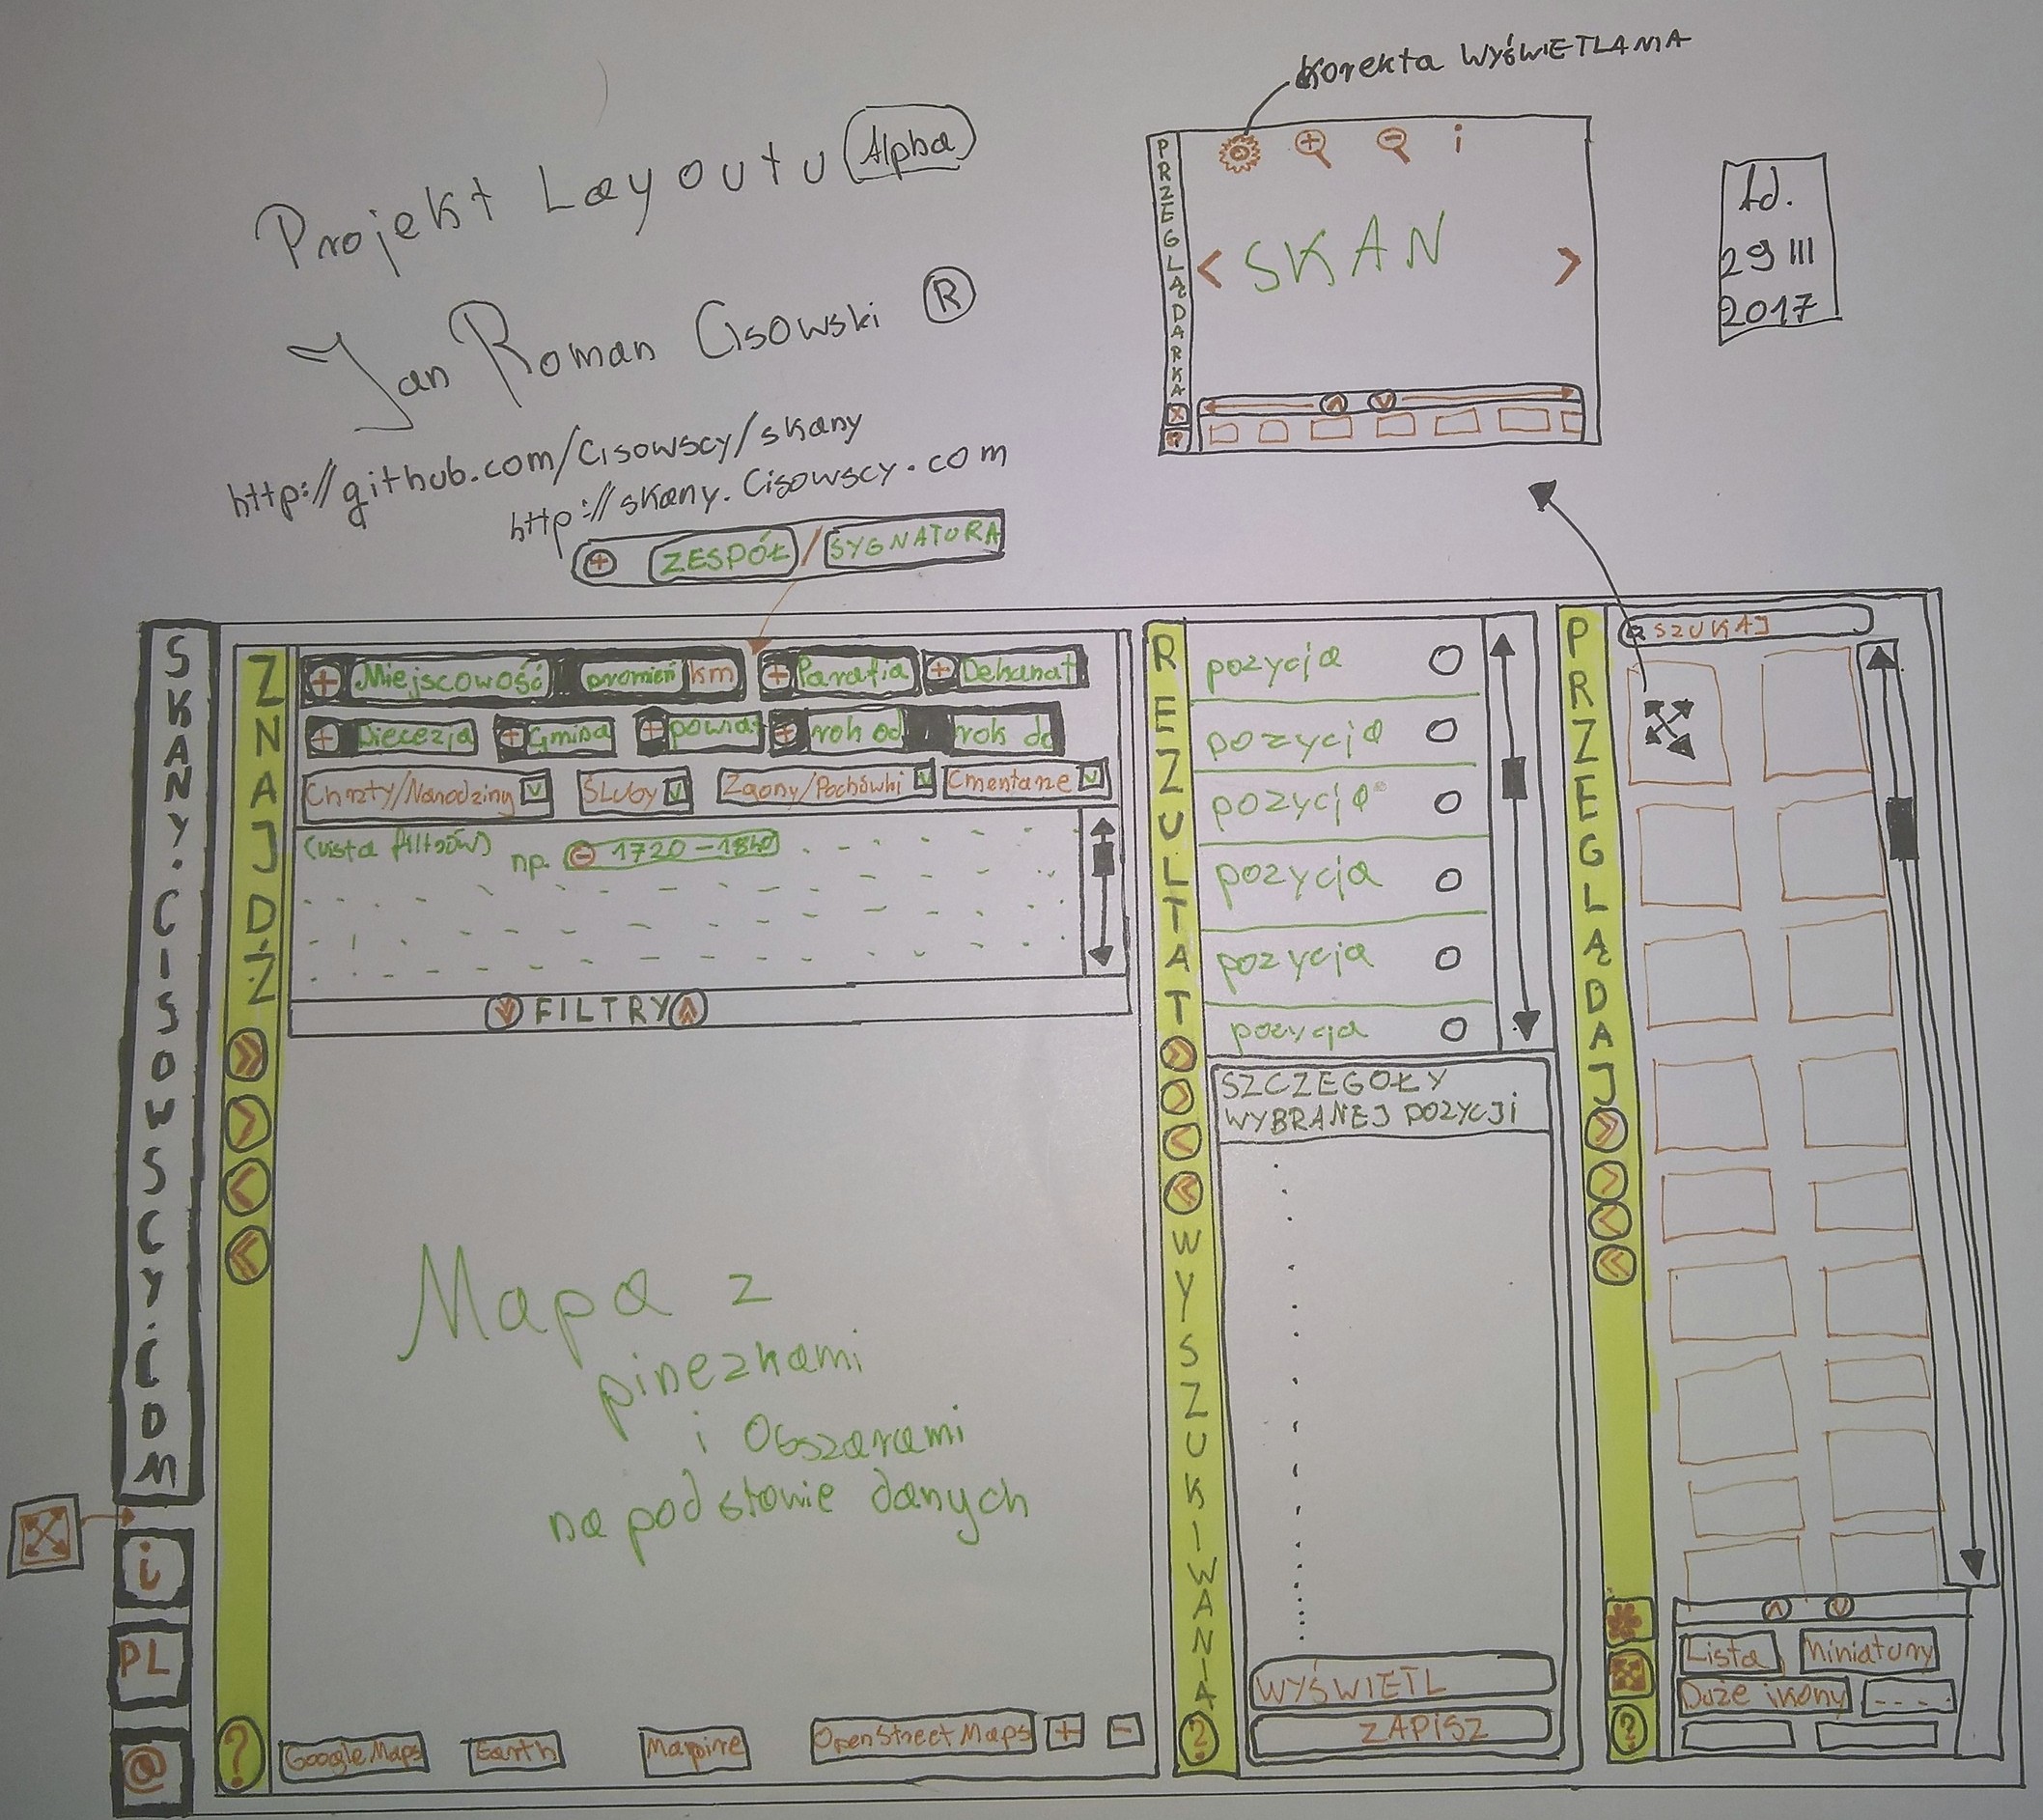 Korekta WYŚWIETLANIA
Projekt Layoutu Alpha
Jan Roman Cisowski ®
http://github.com/Cisowscy/skany
http://skany.Cisowscy.com
+ ZESPÓŁ / SYGNATURA
PRZEGLĄDARKA X ?
+ - i
< SKAN >
Łd.
29 III
2017
SKANY.CISOWSCY.COM
i
PL
@
ZNAJDŹ » > < « ?
+ Miejscowość promień km + Parafia + Dekanat
+ Diecezja + Gmina + powiat + rok od rok do
Chrzty/Narodziny v Śluby v Zgony/Pochówki v Cmentarze v
(lista filtrów) np. - 1720-1840
v FILTRY ^
Mapa z
pinezkami
i Obszarami
na podstawie danych
Google Maps Earth Mapire OpenStreetMaps + -
REZULTAT » > < « WYSZUKIWANIA ?
pozycja
pozycja
pozycja
pozycja
pozycja
pozycja
SZCZEGOŁY
WYBRANEJ POZYCJI
WYŚWIETL
ZAPISZ
PRZEGLĄDAJ » > < « ?
SZUKAJ
^ v
Lista Miniatury
Duże ikony ----